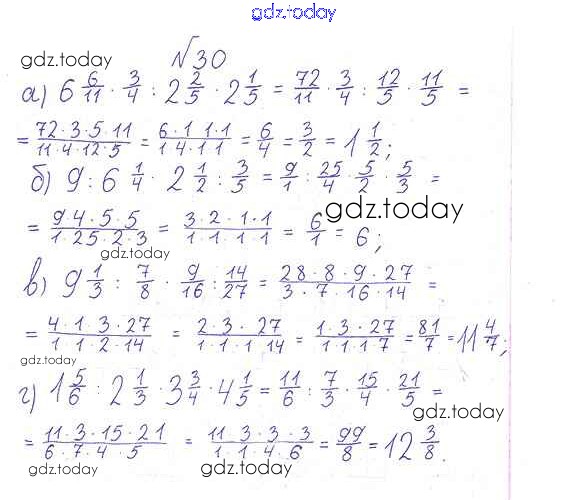 gdz.today
№30
gdz.today
а) 6 6/11 · 3/4 : 2 2/5 · 2 1/5 = 72/11 · 3/4 : 12/5 · 11/5 =
= 72·3·5·11/11·4·12·5 = 6·1·1·1/1·4·1·1 = 6/4 = 3/2 = 1 1/2;
б) 9 : 6 1/4 · 2 1/2 : 3/5 = 9/1 : 25/4 · 5/2 · 5/3 =
gdz.today
= 9·4·5·5/1·25·2·3 = 3·2·1·1/1·1·1·1 = 6/1 = 6;
gdz.today
в) 9 1/3 : 7/8 · 9/16 : 14/27 = 28·8·9·27/3·7·16·14 =
= 4·1·3·27/1·1·2·14 = 2·3·27/1·1·1·14 = 1·3·27/1·1·1·7 = 81/7 = 11 4/7;
gdz.today
г) 1 5/6 : 2 1/3 · 3 3/4 · 4 1/5 = 11/6 : 7/3 · 15/4 · 21/5 =
gdz.today
= 11·3·15·21/6·7·4·5 = 11·3·3·3/1·1·4·6 = 99/8 = 12 3/8.
gdz.today
gdz.today